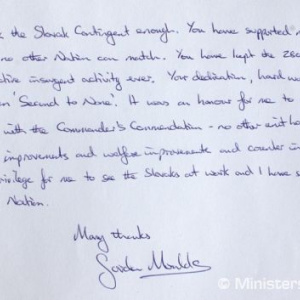 the Slovak Contingent enough. You have supported
no other Nation can match. You have kept the
insurgent activity ever. Your dedication, hard
'Second to None'. It was an honour for me to
with the Commander's Commendation - no other unit
improvements and welfare improvements and counter
for me to see the Slovaks at work and I have
Nation.
Many thanks
© Ministers